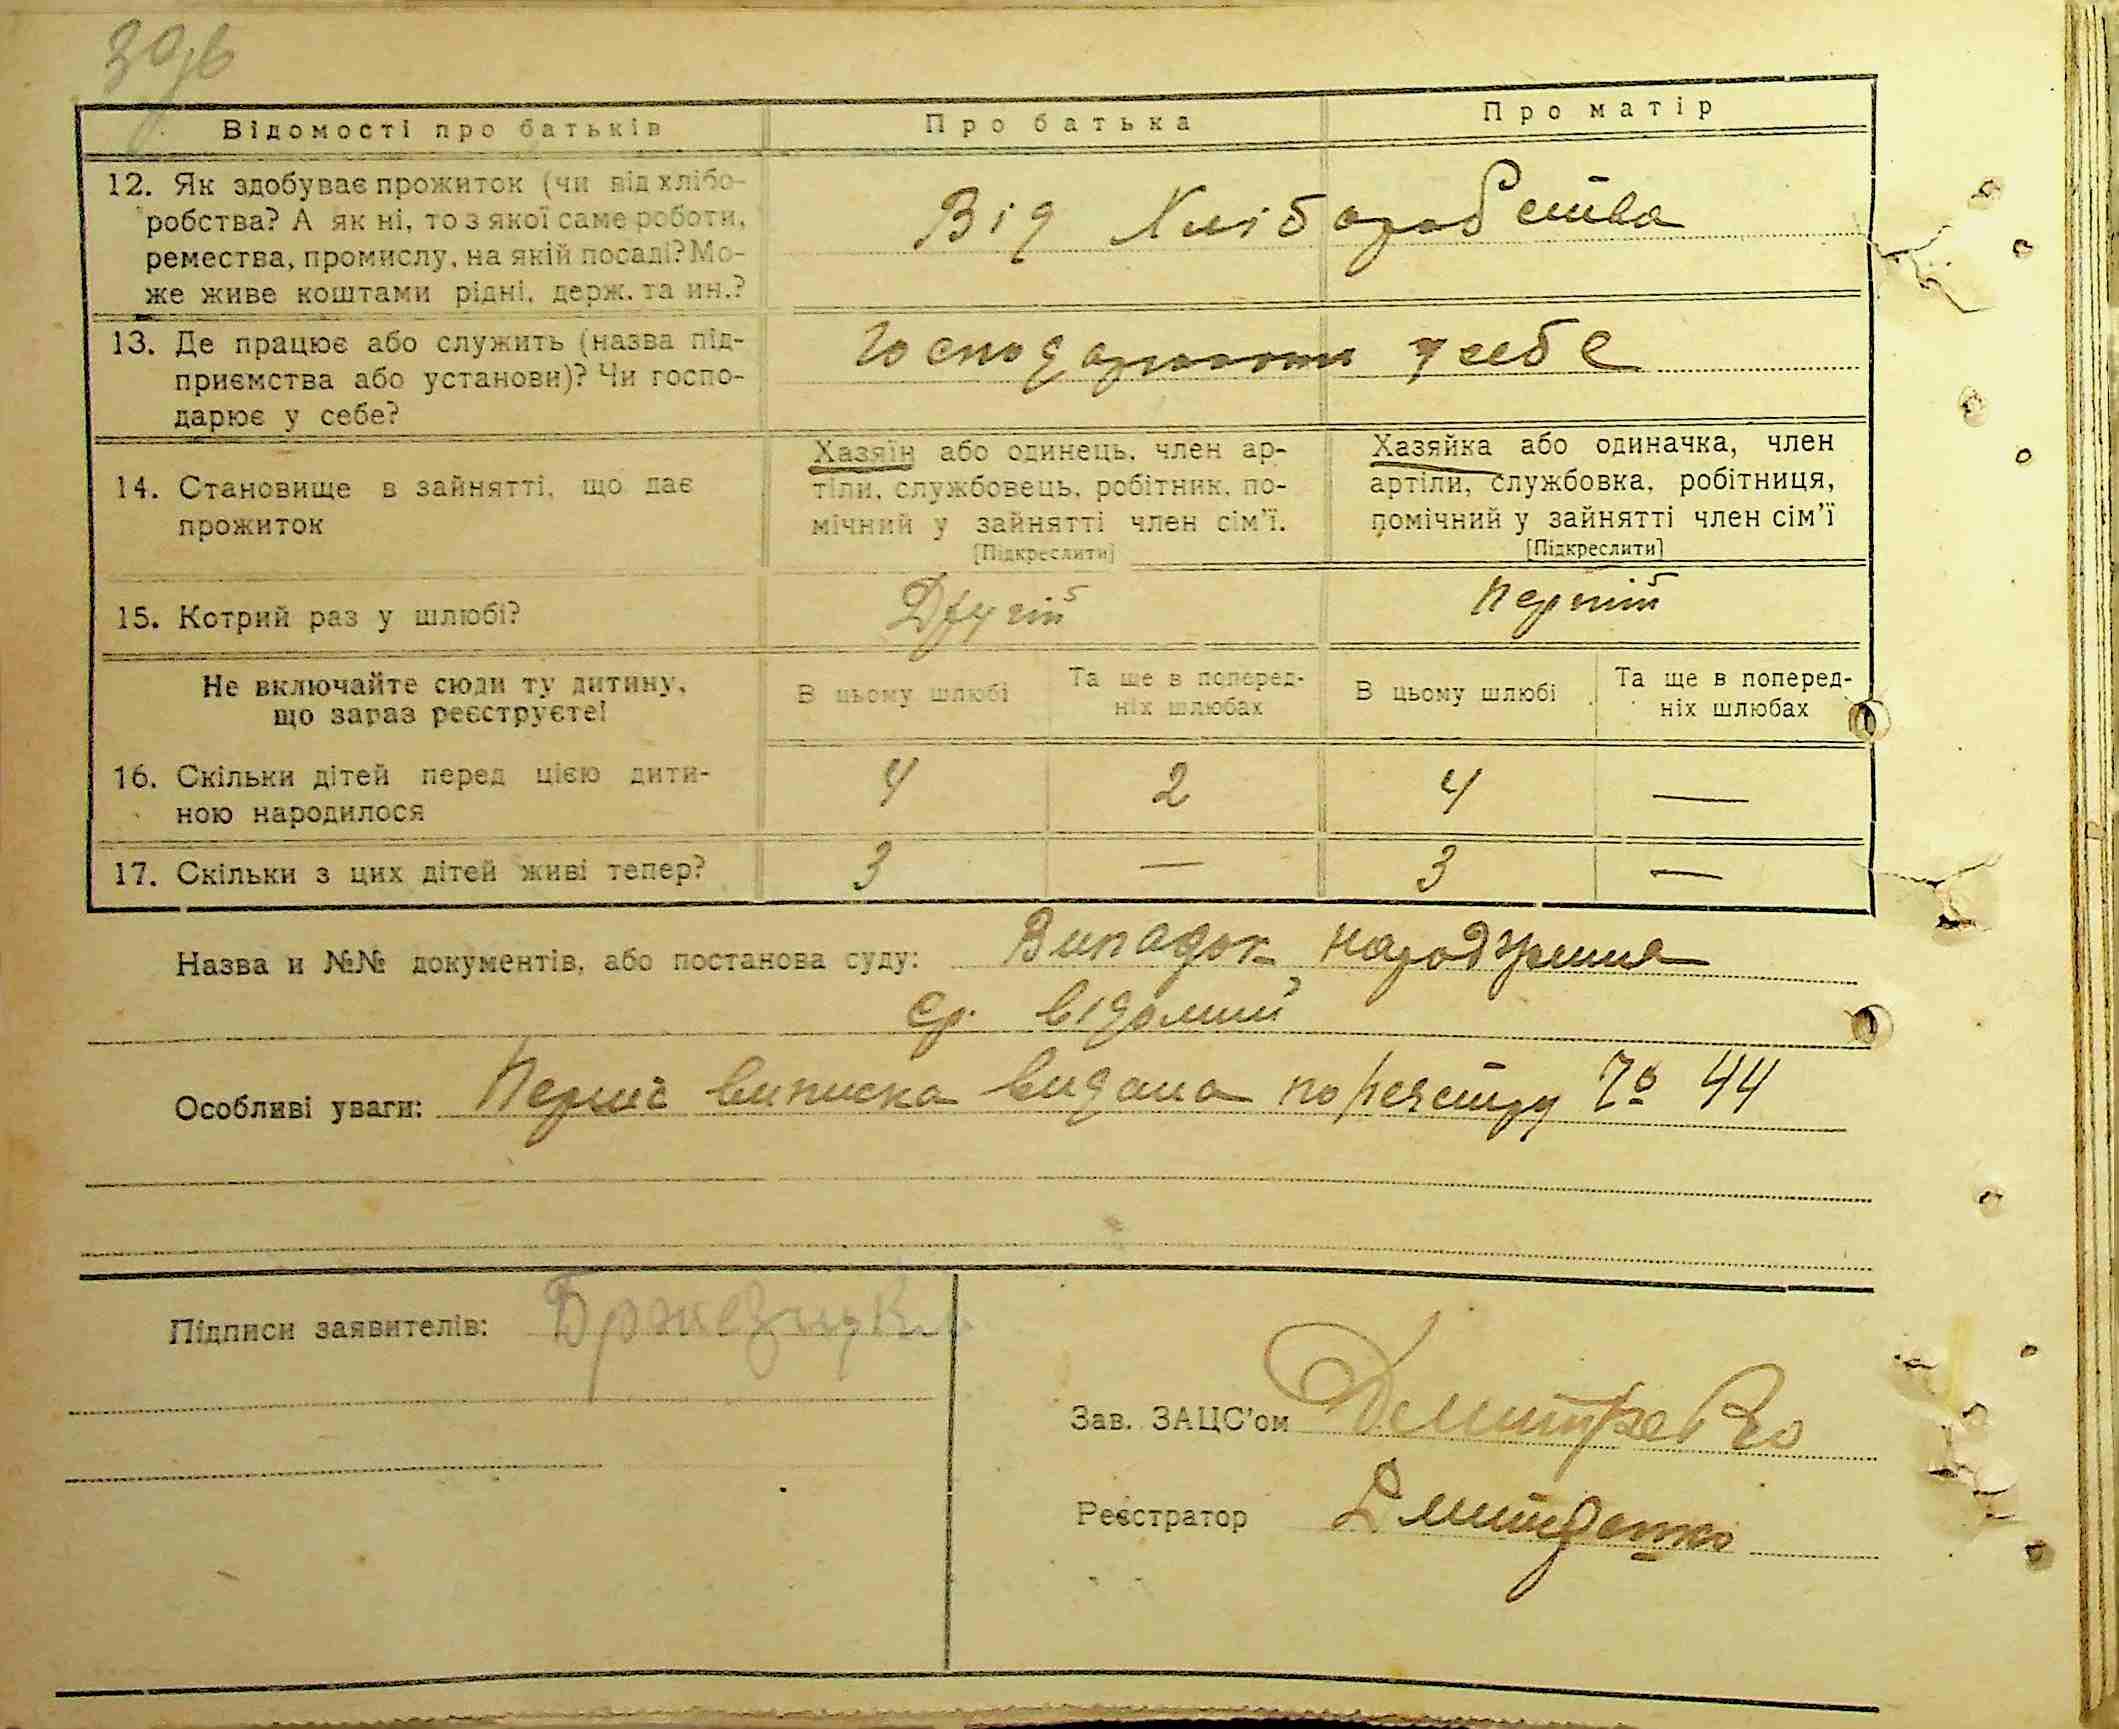 39б
Відомості про батьків
Про батька
Про матір
12. Як здобуває прожиток (чи від хлібо-
робства? А як ні, то з якої саме роботи,
ремества, промислу, на якій посаді? Мо-
же живе коштами рідні, держ. та ин.?
Від Хліборобства
13. Де працює або служить (назва під-
приємства або установи)? Чи госпо-
дарює у себе?
Господарюють у себе
14. Становище в зайнятті, що дає
прожиток
Хазяїн або одинець, член ар-
тіли, службовець, робітник, по-
мічний у зайнятті член сім'ї.
[Підкреслити]
Хазяйка або одиначка, член
артіли, службовка, робітниця,
помічний у зайнятті член сім'ї
[Підкреслити]
15. Котрий раз у шлюбі?
Другій
Перший
Не включайте сюди ту дитину,
що зараз реєструєте!
В цьому шлюбі
Та ще в поперед-
ніх шлюбах
В цьому шлюбі
Та ще в поперед-
ніх шлюбах
16. Скільки дітей перед цією дити-
ною народилося
4
2
4
—
17. Скільки з цих дітей живі тепер?
3
—
3
—
Назва и №№ документів, або постанова суду: Випадок народження
відомий
Особливі уваги: виписка видана по реєстру № 44
Підписи заявителів:
Зав. ЗАЦС'ом
Реєстратор Дмитренко